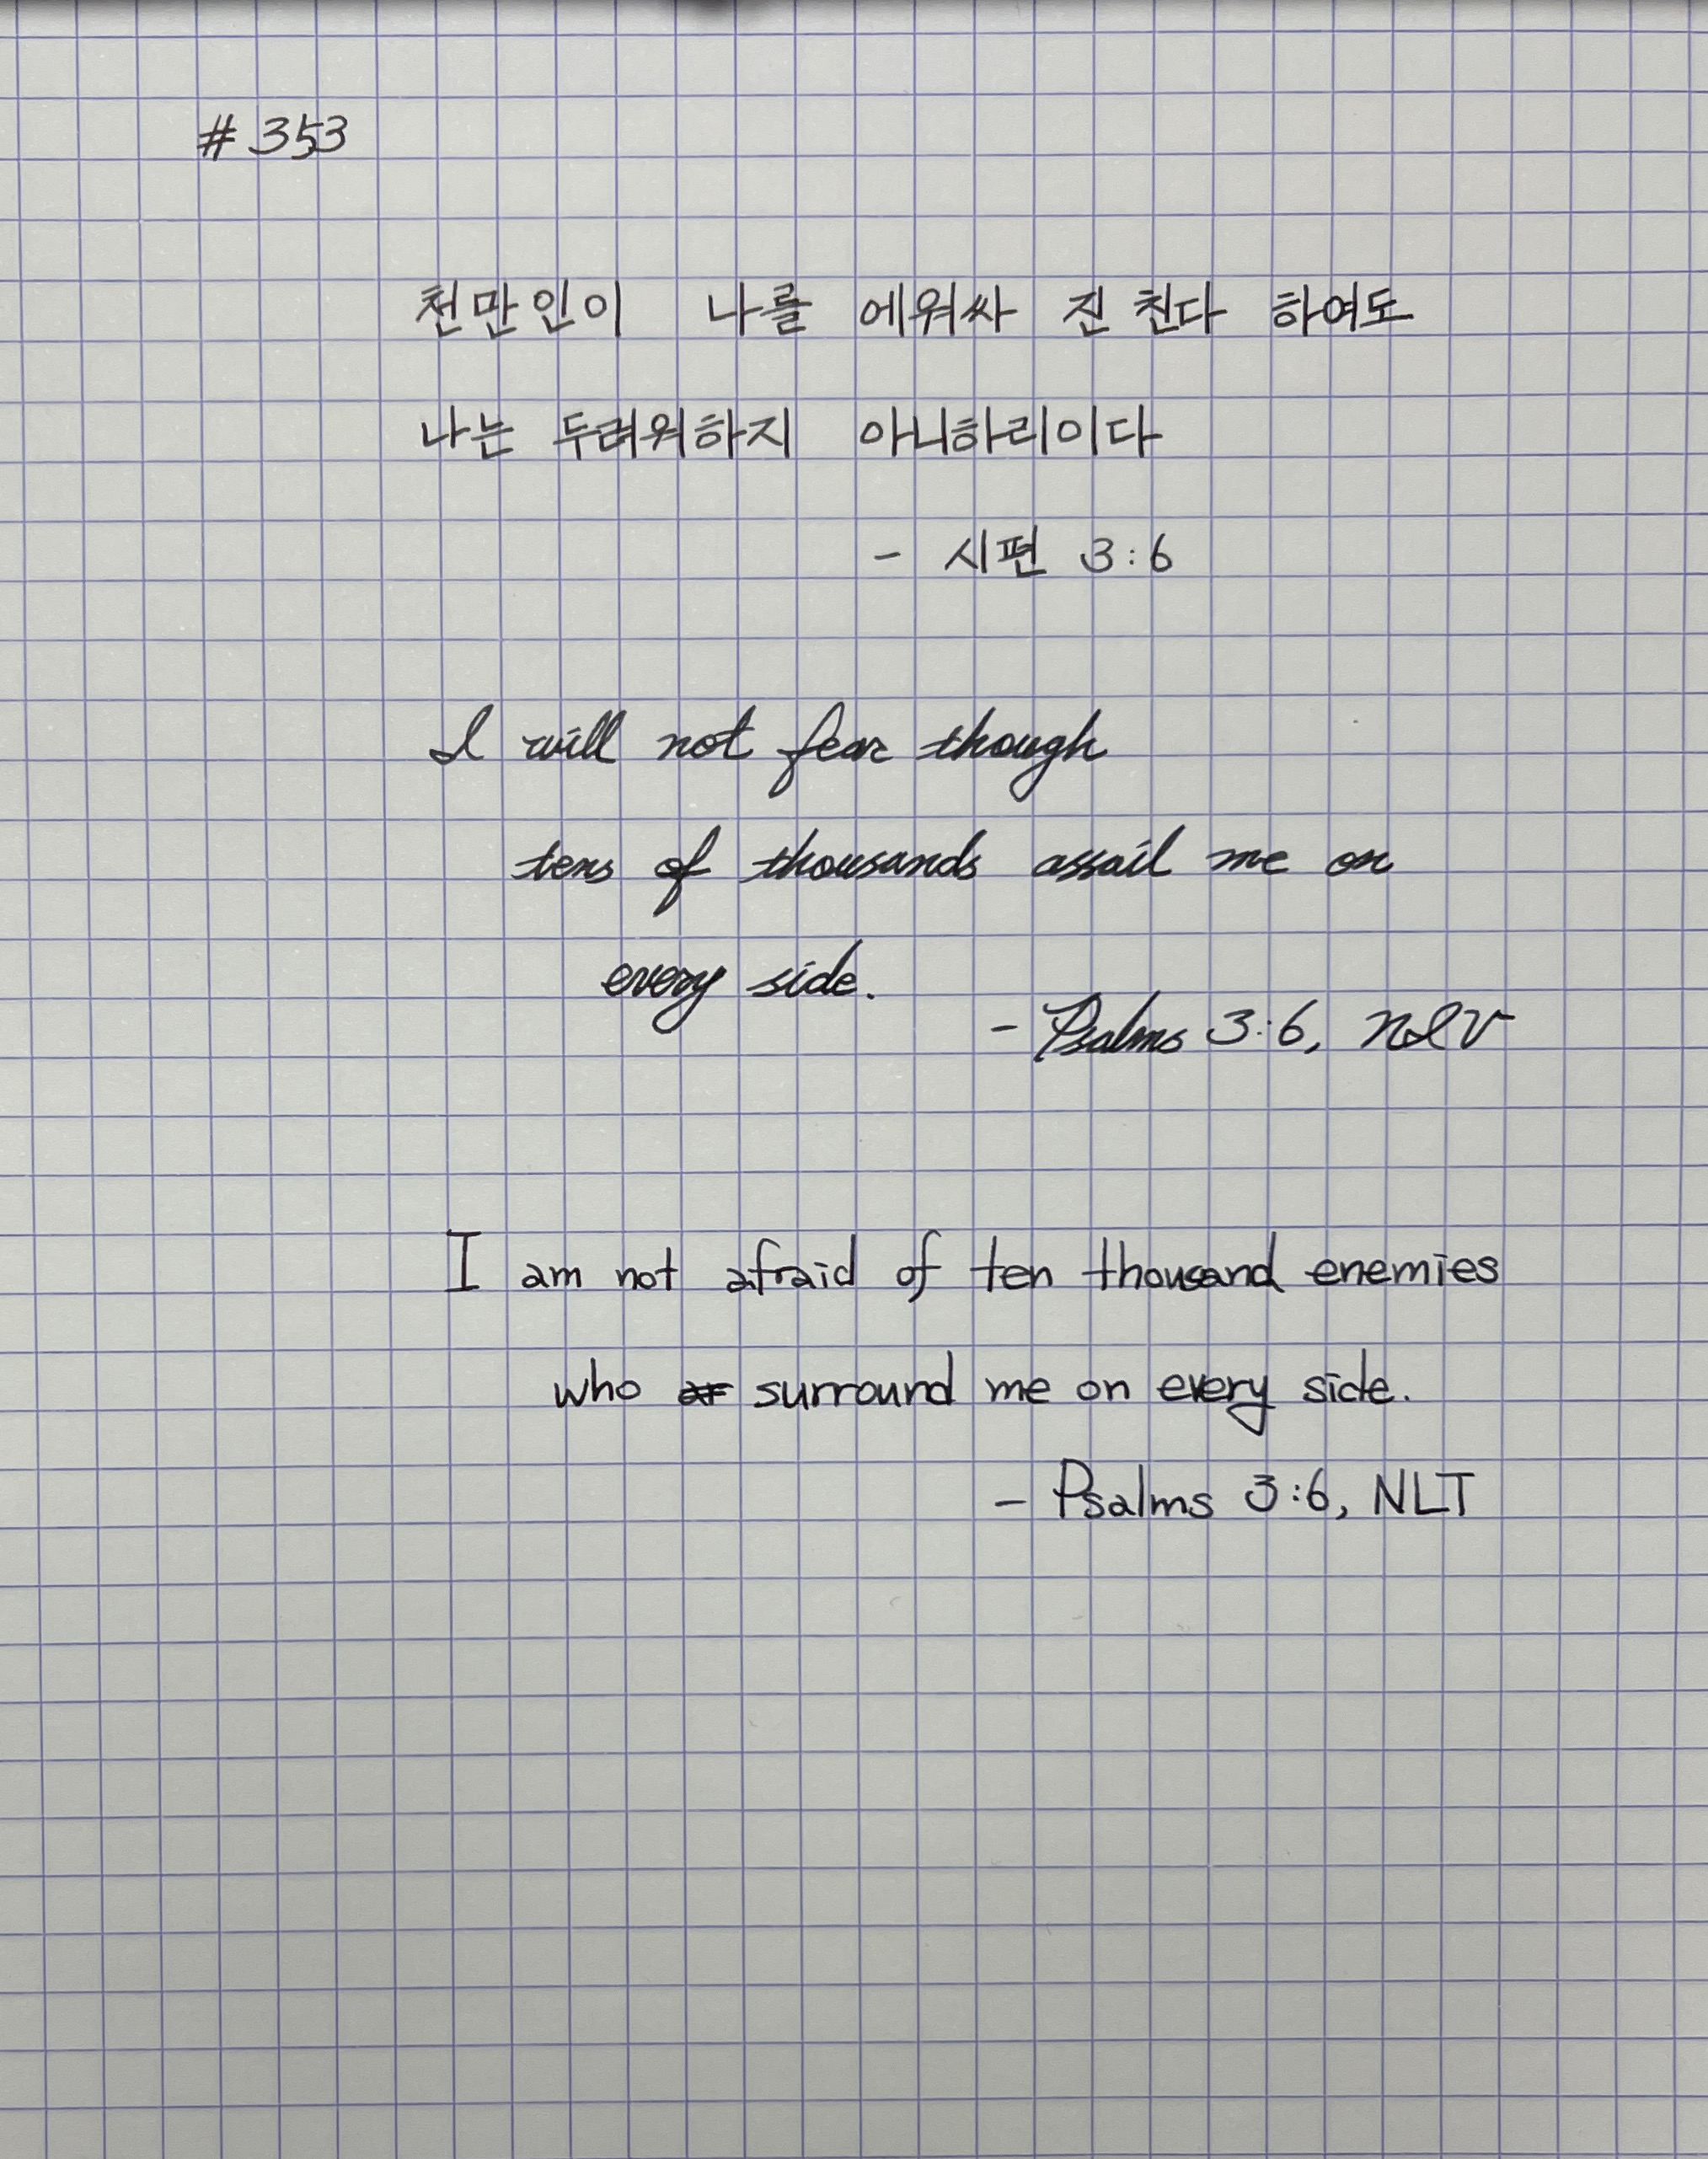 #353
천만인이 나를 에워싸 진 친다 하여도
나는 두려워하지 아니하리이다
- 시편 3:6
I will not fear though
tens of thousands assail me on
every side.
- Psalms 3:6, NIV
I am not afraid of ten thousand enemies
who surround me on every side.
- Psalms 3:6, NLT